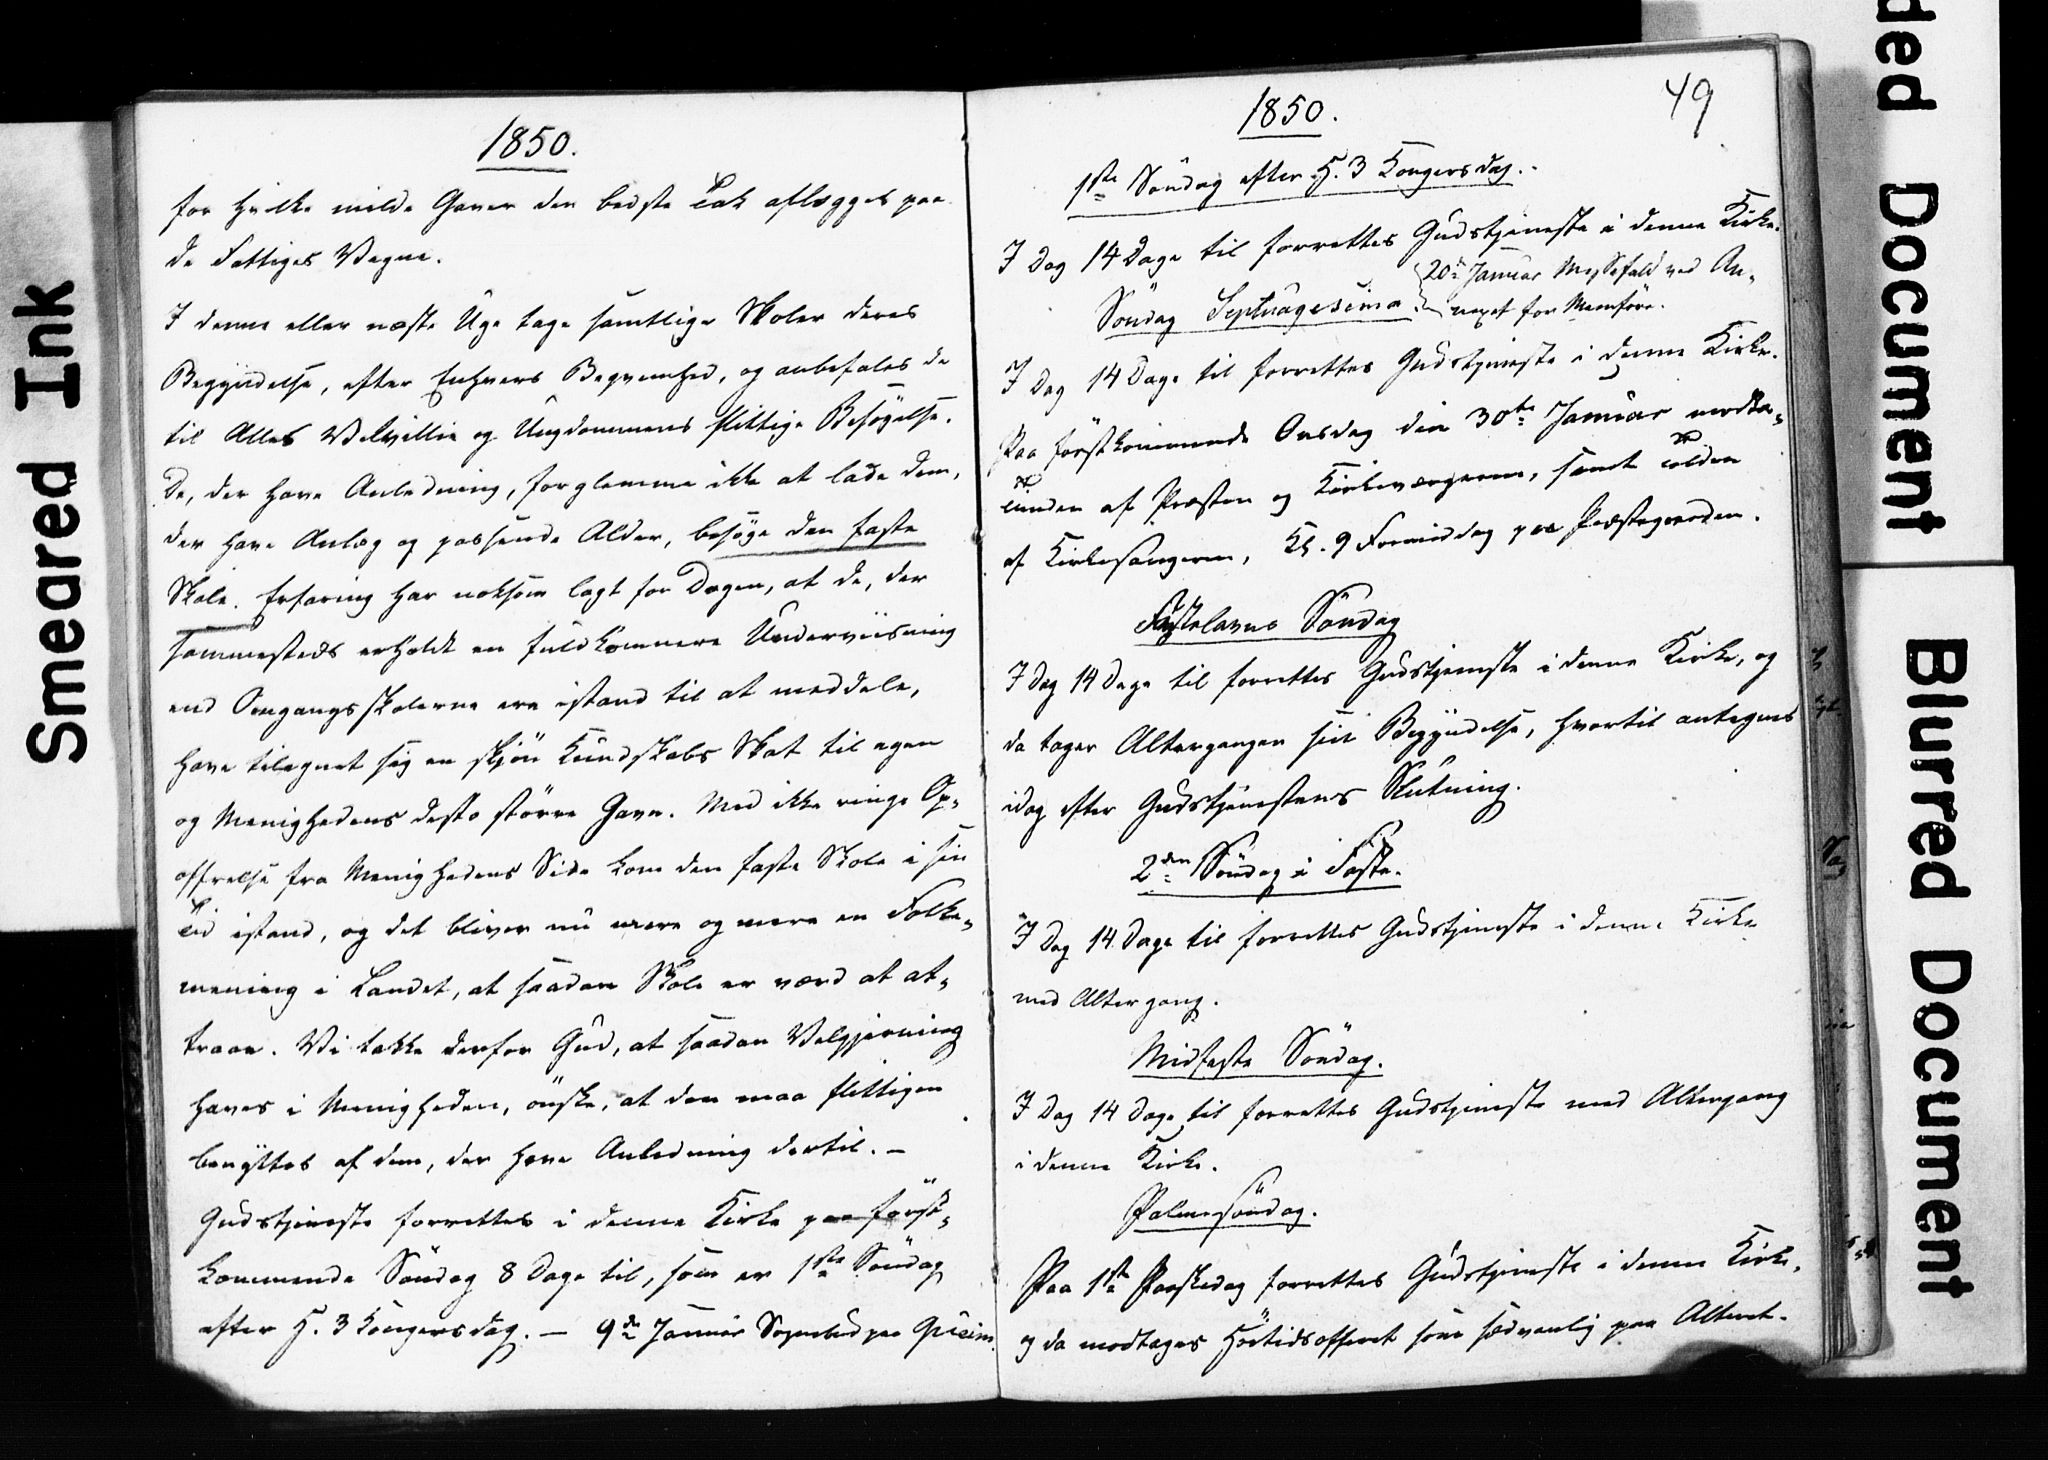 1850.
for hvilke milde Gaver den bedste Tak aflægges paa
de Fattiges Vegne.
I denne eller næste Uge tage samtlige Skoler deres
Begyndelse, efter Enhvers Beqvemhed, og anbefales de
til Alles Velvillie og Ungdommens flittige Besøgelse.
De, der have Anledning, forglemme ikke at lade dem,
der have Anlæg og passende Alder, besøge den faste
Skole. Erfaring har noksom lagt for Dagen, at de, der
sammesteds erholdt en fuldkomnere Underviisning
end Omgangsskolerne ere istand til at meddele,
have tilegnet sig en skjøn Kundskabs Skat til egen
og Menighedens desto større Gavn. Med ikke ringe Op-
offrelse fra Menighedens Side kom den faste Skole i sin
Tid istand, og det bliver nu mere og mere en Folke-
mening i Landet, at saadan Skole er værd at at-
traae. Vi takke derfor Gud, at saadan Velgjerning
haves i Menigheden, ønske, at den maa flittigen
benyttes af dem, der have Anledning dertil. –
Gudstjeneste forrettes i denne Kirke paa først-
kommende Søndag 8 Dage til, som er 1ste Søndag
efter H. 3 Kongersdag. – 9de Januar Sognebud paa
49
1850.
1ste Søndag efter H. 3 Kongersdag.
I Dag 14 Dage til forrettes Gudstjeneste i denne Kirke.
20de Januar Messefald ved An-
Søndag Septuagesima. nexet for Menføre.
I Dag 14 Dage til forrettes Gudstjeneste i denne Kirke.
Paa førstkommende Onsdag den 30te Januar modta-
af Præsten og Kirkeværgerne, samt
af Kirkesangeren, Kl. 9 Formiddag paa Præstegaarden.
Fastelavns Søndag
I Dag 14 Dage til forrettes Gudstjeneste i denne Kirke, og
da tager Altergangen sin Begyndelse, hvortil antegnes
idag efter Gudstjenestens Slutning.
2den Søndag i Faste.
I Dag 14 Dage til forrettes Gudstjeneste i denne Kirke
med Altergang.
Midfaste Søndag.
I Dag 14 Dage til forrettes Gudstjeneste med Altergang
i denne Kirke.
Palmesøndag.
Paa 1ste Paaskedag forrettes Gudstjeneste i denne Kirke,
og da modtages Høitidsofferet som sædvanlig paa Alteret.
Smeared Ink
ded Document
Blurred Document